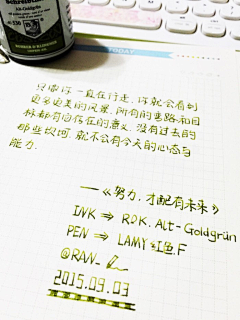 Schreibtinte
Alt-Goldgrün
ROHRER & KLINGNER
TODAY
只要你一直在行走，你就会看到
更多更美的风景，所有的思路和目
标都有自存在的意义，没有过去的
那些坎坷，就不会有今天的心态与
能力.
——《努力，才配有未来》
INK ⇒ R&K. Alt-Goldgrün
PEN ⇒ LAMY 红色.F
@RAN_
2015.09.03